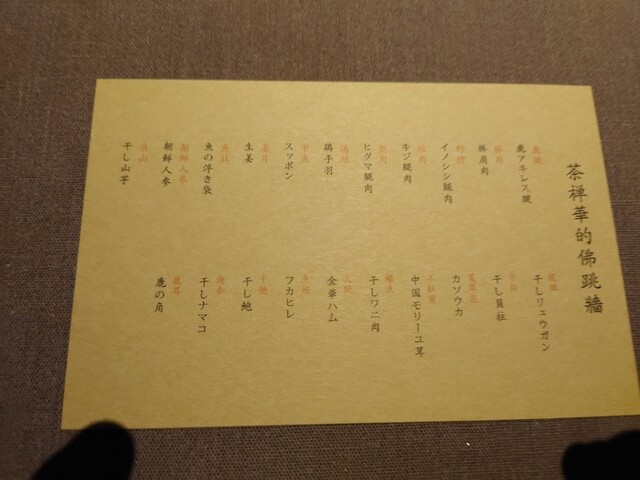 茶禅華的佛跳牆
鹿アキレス腱
豚肉
豚肩肉
野猪
イノシシ腿肉
キジ腿肉
熊肉
ヒグマ腿肉
鶏翅
鶏手羽
甲魚
スッポン
姜片
生姜
魚肚
魚の浮き袋
朝鮮人参
朝鮮人参
淮山
干し山芋
龍眼
干しリュウガン
干貝
干し貝柱
カソウカ
羊肚菌
中国モリーユ茸
干しワニ肉
火腿
金華ハム
魚翅
フカヒレ
干鮑
干し鮑
海参
干しナマコ
鹿茸
鹿の角